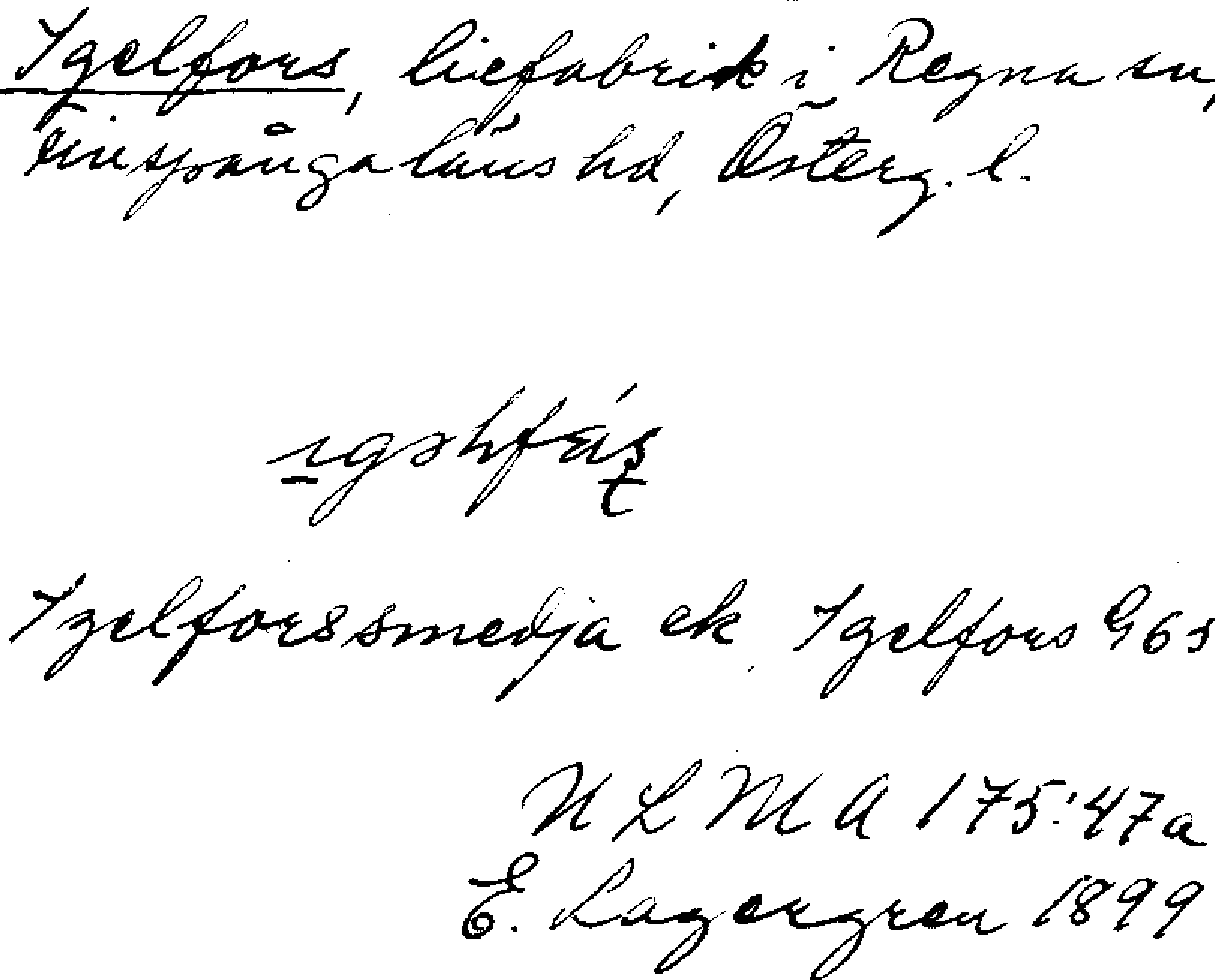 Igelfors, liefabrik i Regna sn,
Finspångaläns hd, Österg. l.
Igelforssmedja ek Igelfors G63
ULMA 175:47a
E. Lagergren 1899